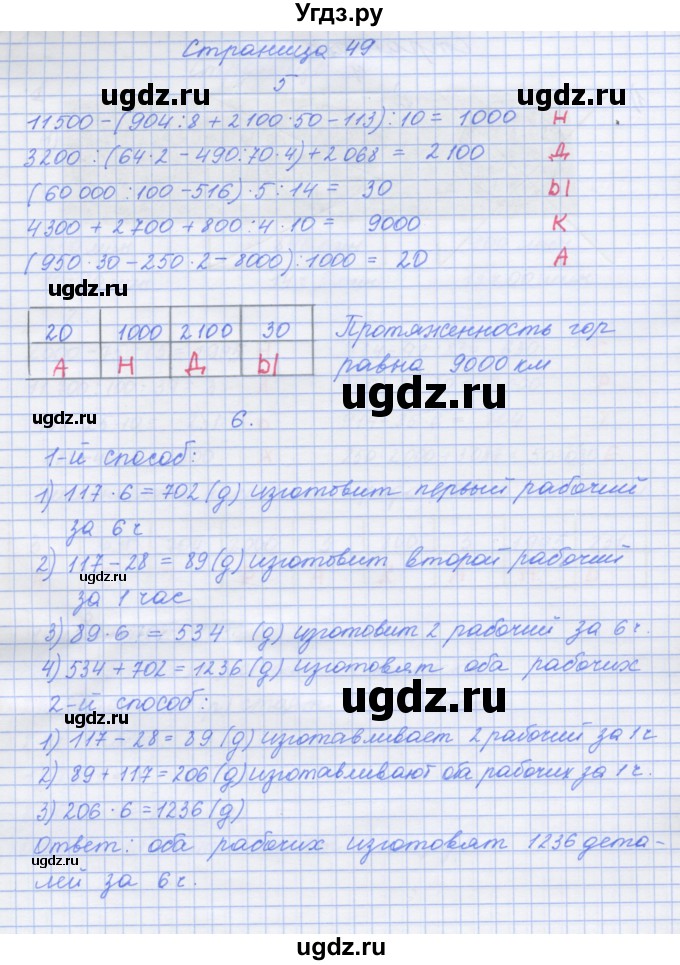 Угдз.ру
Страница 49
5
11500 - (904 : 8 + 2100 · 50 - 113) : 10 = 1000 Н
3200 : (64 · 2 - 490 : 70 · 4) + 2068 = 2100 Д
(60 000 : 100 - 516) · 5 : 14 = 30 Ы
4300 + 2700 + 800 : 4 · 10 = 9000 К
(950 · 30 - 250 · 2 - 8000) : 1000 = 20 А
20 1000 2100 30
А Н Д Ы
Протяженность гор
равна 9000 км
6.
1-й способ:
1) 117 · 6 = 702 (д) изготовит первый рабочий
за 6 ч
2) 117 - 28 = 89 (д) изготовит второй рабочий
за 1 час
3) 89 · 6 = 534 (д) изготовит 2 рабочий за 6 ч.
4) 534 + 702 = 1236 (д) изготовят оба рабочих
2-й способ:
1) 117 - 28 = 89 (д) изготавливает 2 рабочий за 1 ч
2) 89 + 117 = 206 (д) изготавливают оба рабочих за 1 ч.
3) 206 · 6 = 1236 (д)
Ответ: оба рабочих изготовят 1236 дета-
лей за 6 ч.
ugdz.ru
ugdz.ru
ugdz.ru
ugdz.ru
ugdz.ru
ugdz.ru
ugdz.ru
ugdz.ru
ugdz.ru
ugdz.ru
ugdz.ru
ugdz.ru